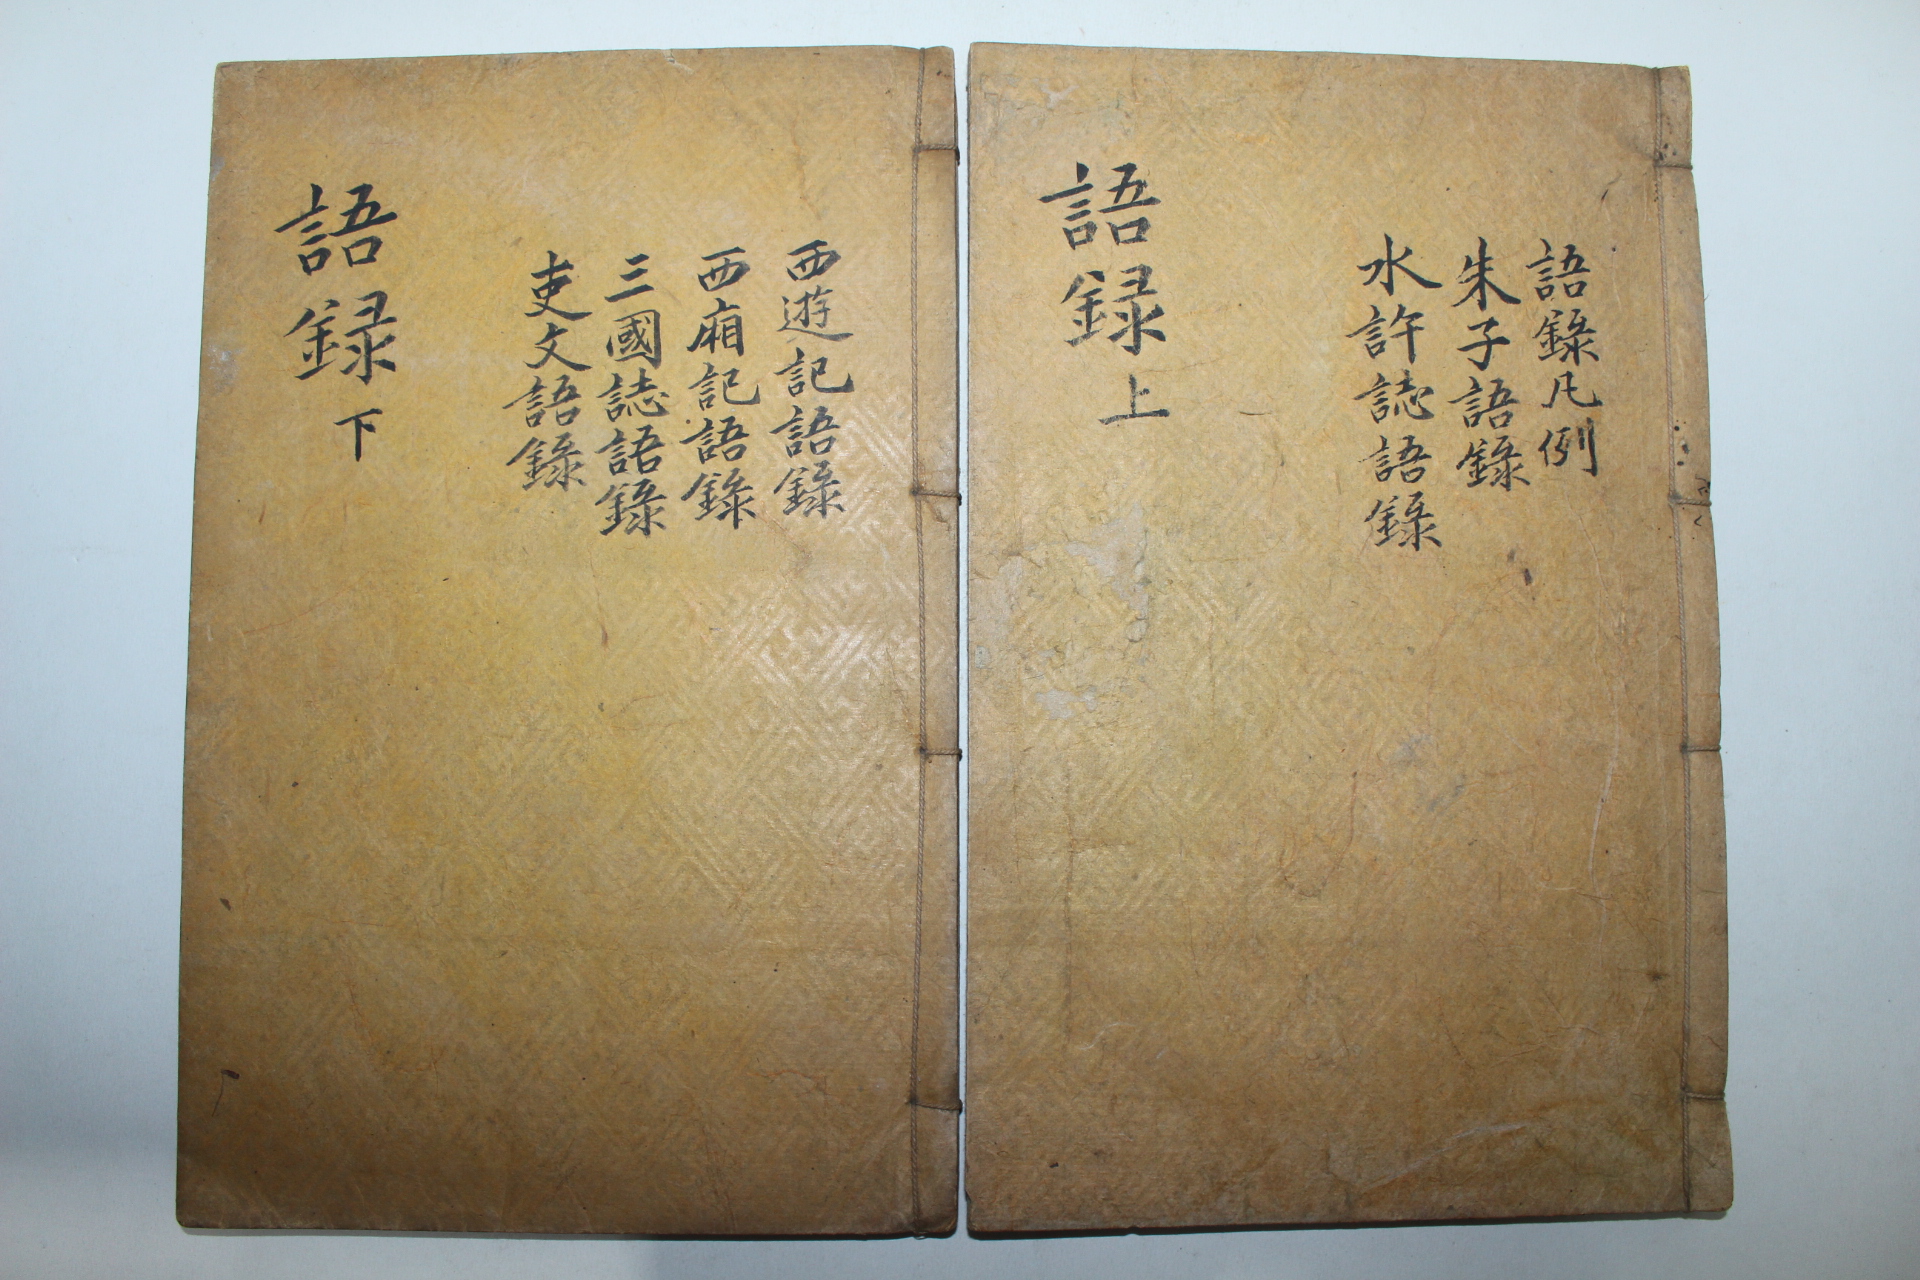 語錄凡例
朱子語錄
水許誌語錄
語録上
西遊記語錄
西廂記語錄
三國誌語錄
吏文語錄
語録下